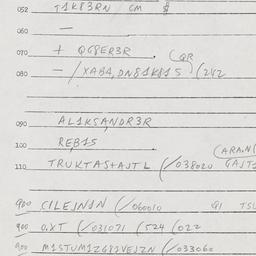 052 T1K83RN CM
060 —
070 + QG8ER3R
(QR
080 — /XABA,DN81K815 (242
090 AL1KSANDR3R
100 REB15
(ARAN(
110 TRUKTAS+AJTL (/038020 GAJT1
900 CILEJN1N (/060010 G1 TSL
900 O.XT (/031071 (524 (022
900 M1STUM1Z681VEJZN (/033060